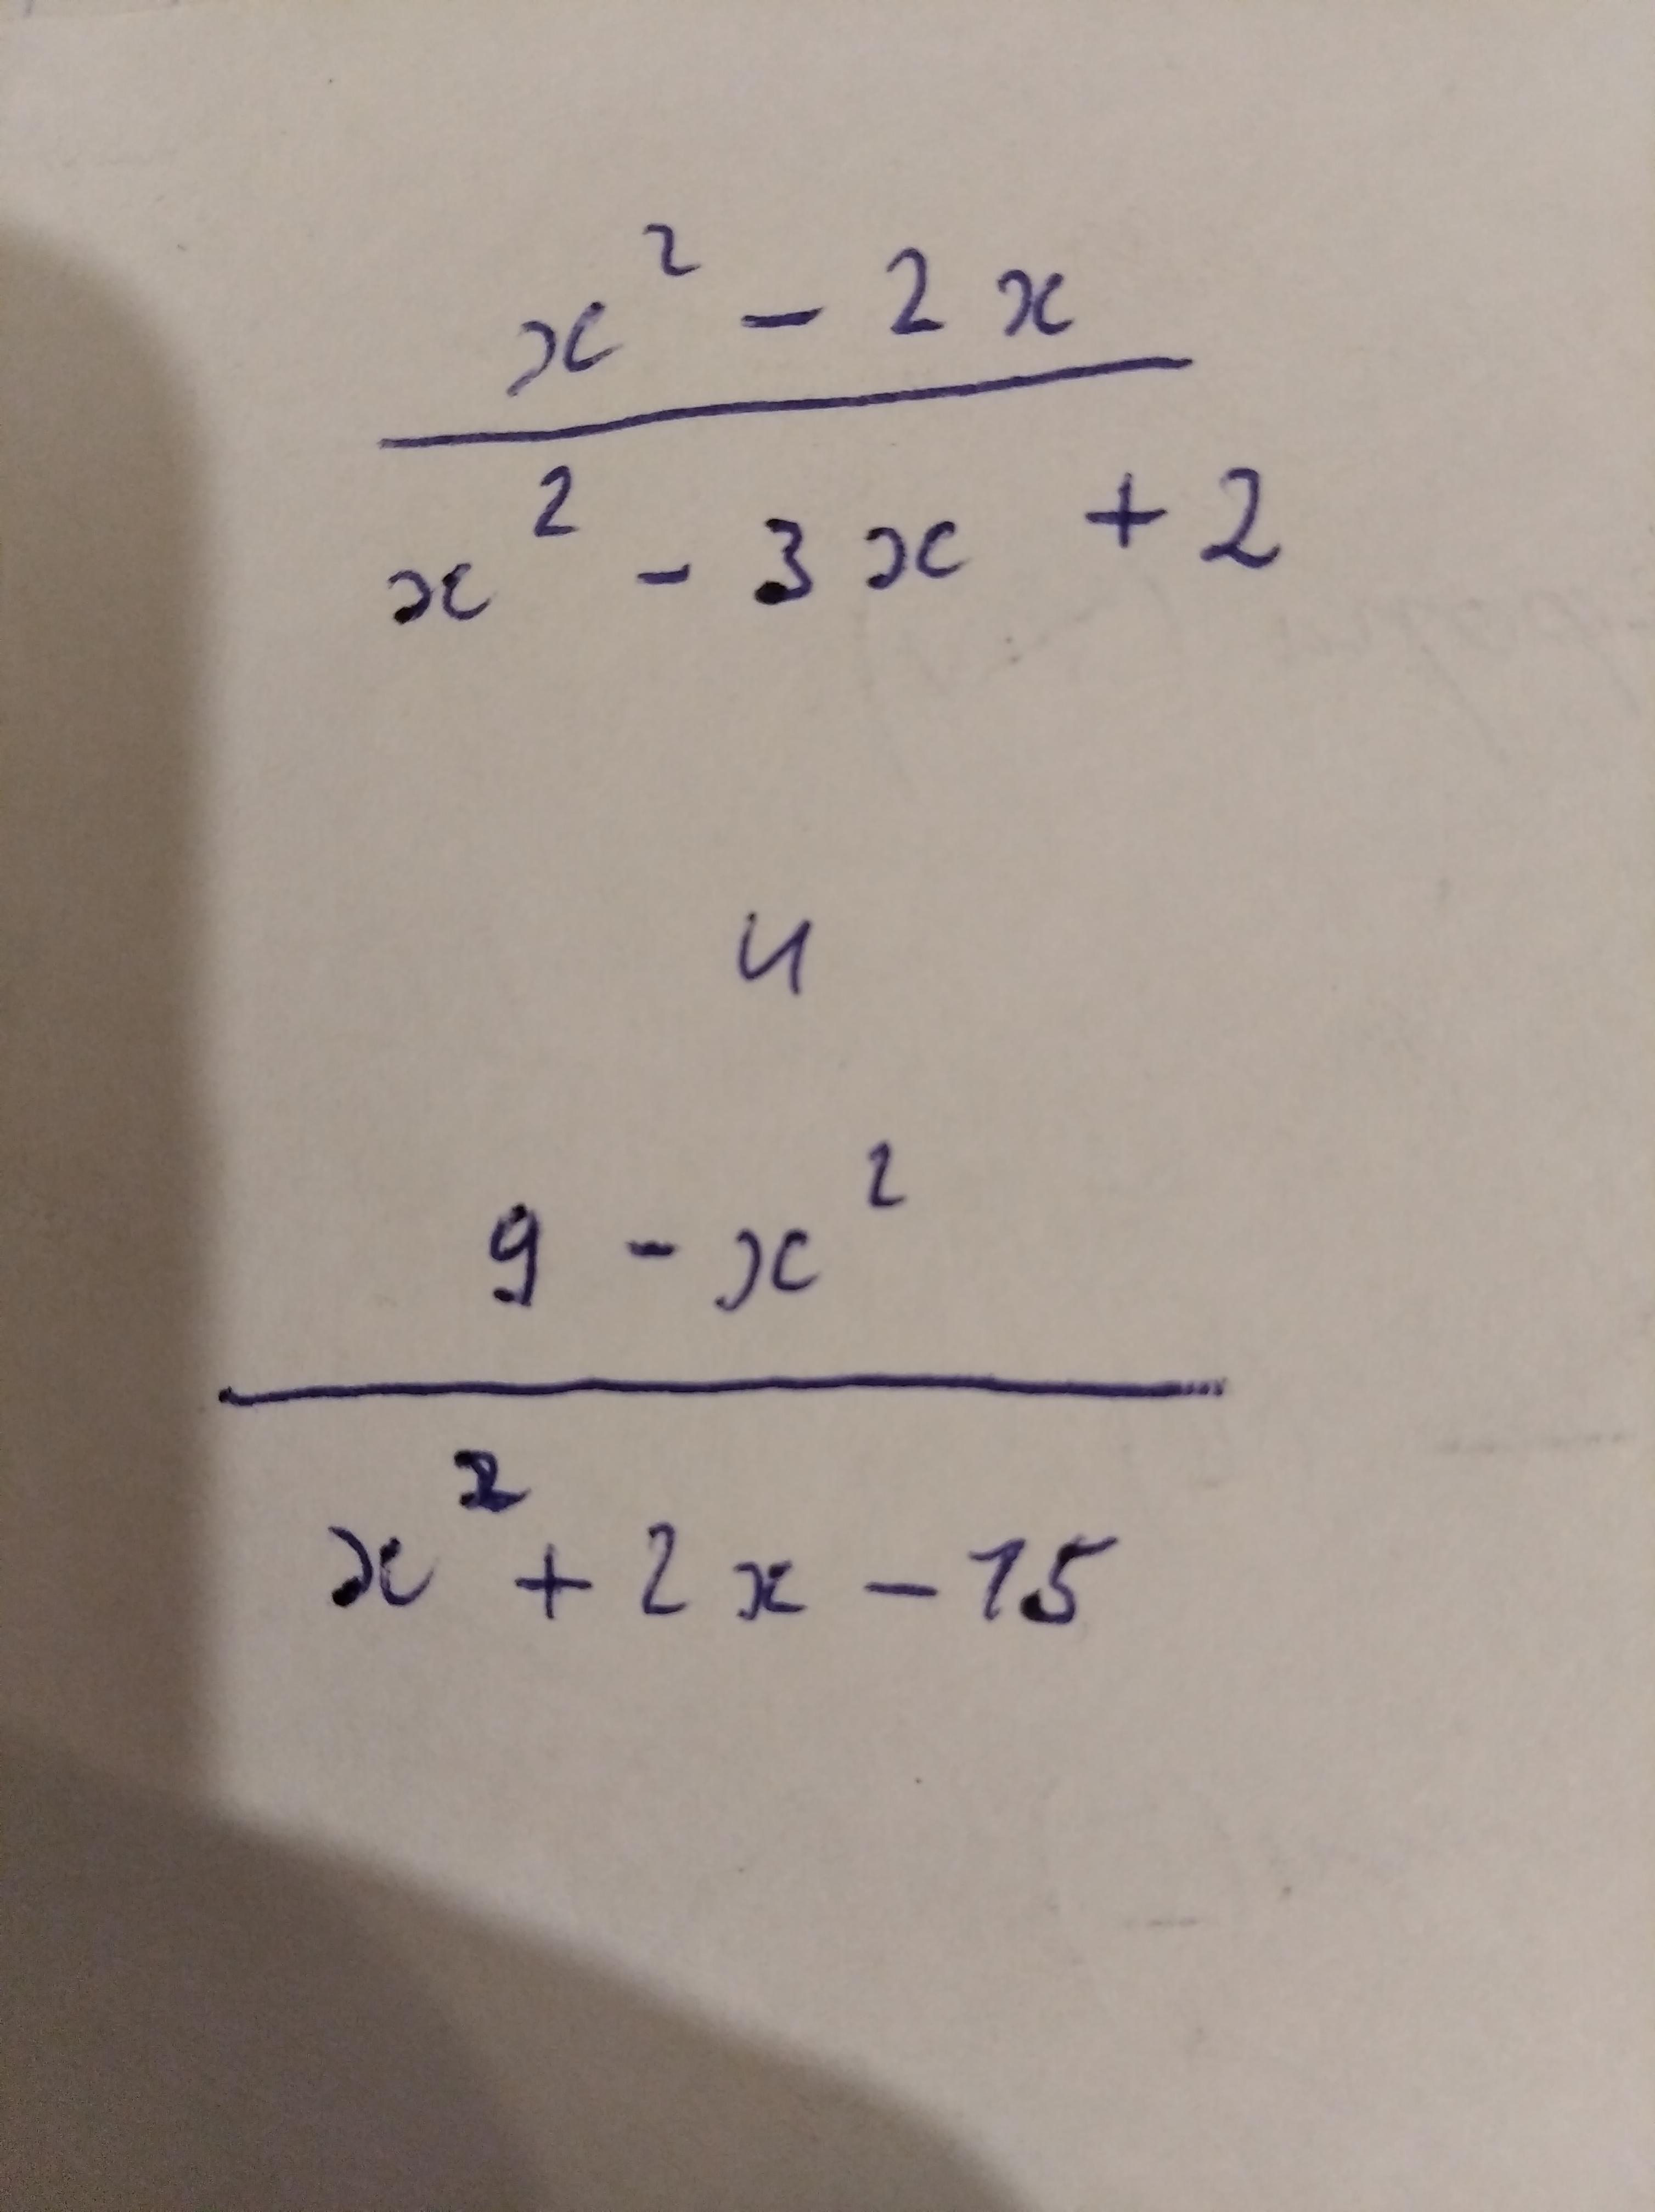 x² - 2x
x² - 3x + 2
и
9 - x²
x² + 2x - 15